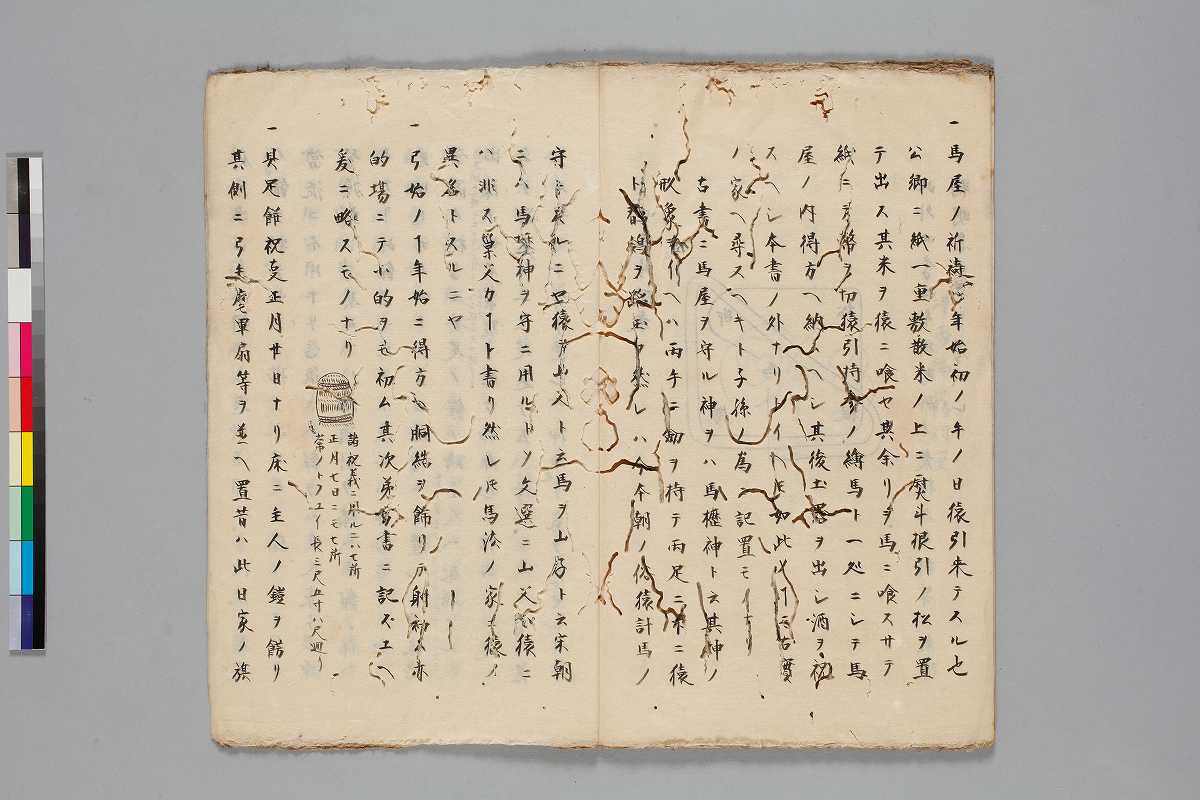 一馬屋ノ祈祷ハ年始初ノ午ノ日猿引来テスル也
公卿ニ紙一重敷散米ノ上ニ熨斗根引ノ松ヲ置
テ出ス其米ヲ猿ニ喰セ其余リヲ馬ニ喰スサテ
紙ニテ幣ヲ切猿引持参ノ縛馬ト一処ニシテ馬
屋ノ内得方ヘ納ムヘシ其後土器ヲ出シ酒ヲ祝
スヘシ本書ノ外ナリトイヘ𪜈如此ノヿ
ノ家ヘ尋スヘキト子孫ノ為ニ記置モノナリ
古書ニ馬屋ヲ守ル神ヲハ馬櫪神ト云其神ノ
形象ヲ云ヘハ両手ニ劔ヲ持テ両足ニ下ニ猿
ト鶺鴒ヲ踏玉フ然レハ今本朝ノ俗猿計馬ノ
守トスルニヤ猿ヲ山父ト云馬ヲ山子ト云宋朝
ニハ馬櫪神ヲ守ニ用ルトソ文選ニ山父ハ猿ニ
ハ非ス巣父カヿト書リ然レ𪜈馬法ノ家ニ猿ノ
異名トスルニヤ
一弓始ノヿ年始ニ得方ヘ胴結ヲ飾リ
的場ニテ小的ヲモ初ム其次第書ニ記ス
爰ニ略スモノナリ
諸祝義ニ用ルニハ七所
正月七日ニモ七所
常ノトフユイ長三尺五寸八尺廻リ
一具足餅祝夏正月廿日ナリ床ニ主人ノ鎧ヲ餝リ
其側ニ弓
軍扇等ヲ並ヘ置昔ハ此日家ノ旗